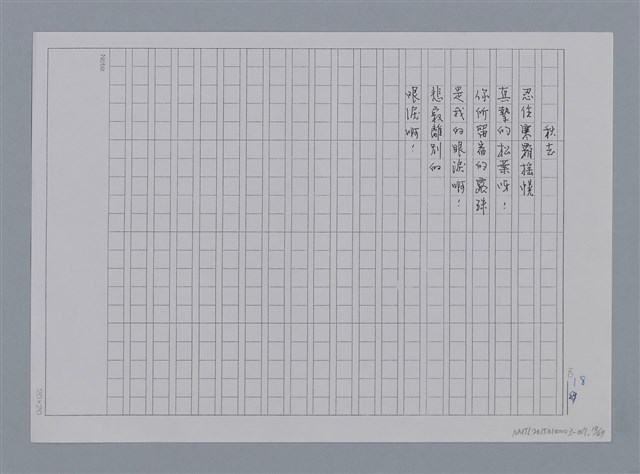 秋去
忍住寒霜搖愰
真摯的松葉呀！
你所留著的露珠
是我的眼淚啊！
悲哀離別的
眼淚啊！
Note
NO.
18
20×20